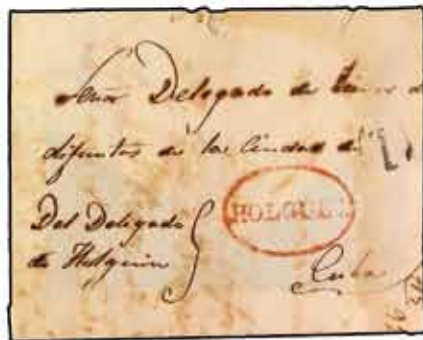 Señor Delegado de bienes de
difuntos de la Ciudad de
Del Delegado
de Holguin
HOLGUIN
Cuba